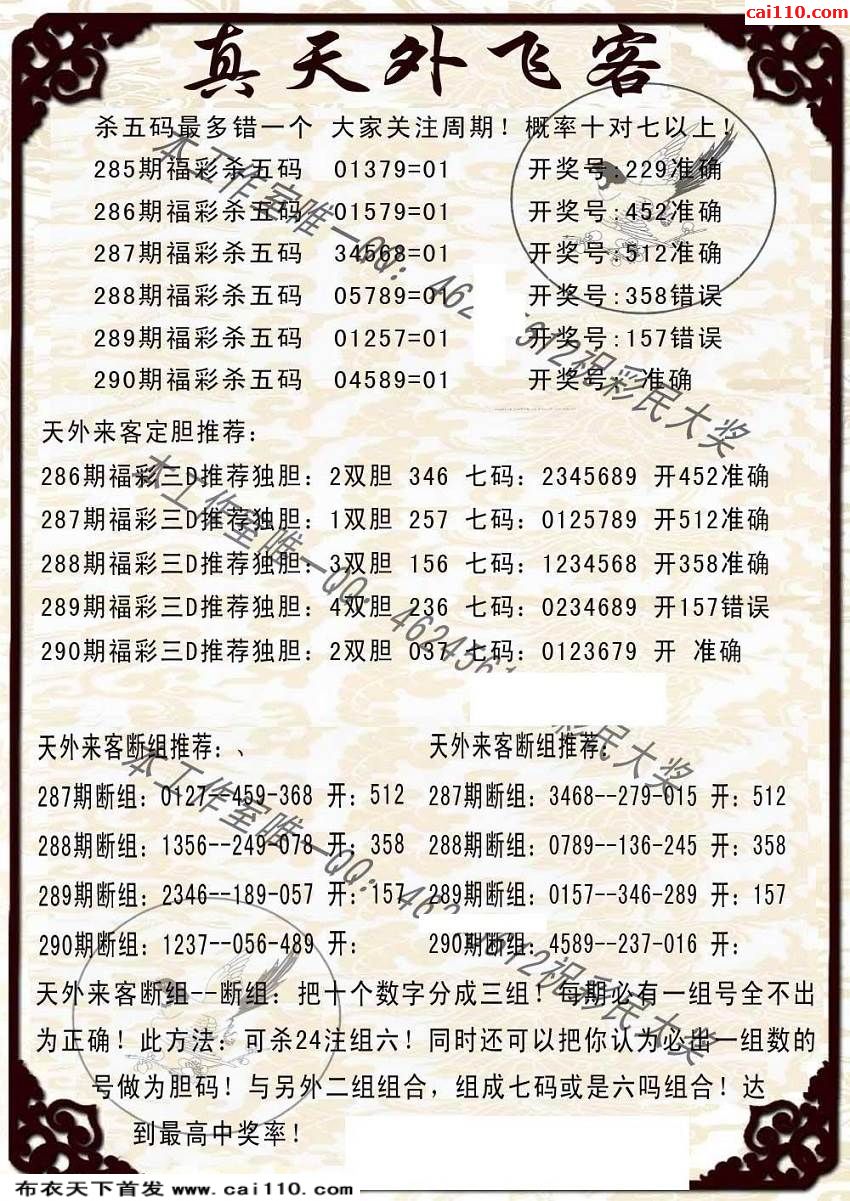 cai110.com
真天外飞客
杀五码最多错一个 大家关注周期！概率十对七以上！
285期福彩杀五码 01379=01 开奖号:229准确
286期福彩杀五码 01579=01 开奖号:452准确
287期福彩杀五码 34568=01 开奖号:512准确
288期福彩杀五码 05789=01 开奖号:358错误
289期福彩杀五码 01257=01 开奖号:157错误
290期福彩杀五码 04589=01 开奖号: 准确
天外来客定胆推荐：
286期福彩三D推荐独胆：2双胆 346 七码：2345689 开452准确
287期福彩三D推荐独胆：1双胆 257 七码：0125789 开512准确
288期福彩三D推荐独胆：3双胆 156 七码：1234568 开358准确
289期福彩三D推荐独胆：4双胆 236 七码：0234689 开157错误
290期福彩三D推荐独胆：2双胆 037 七码：0123679 开 准确
天外来客断组推荐：、 天外来客断组推荐：
287期断组：0127--459-368 开：512 287期断组：3468--279-015 开：512
288期断组：1356--249-078 开：358 288期断组：0789--136-245 开：358
289期断组：2346--189-057 开：157 289期断组：0157--346-289 开：157
290期断组：1237--056-489 开： 290期断组：4589--237-016 开：
天外来客断组--断组：把十个数字分成三组！每期必有一组号全不出
为正确！此方法：可杀24注组六！同时还可以把你认为必出一组数的
号做为胆码！与另外二组组合，组成七码或是六吗组合！达
到最高中奖率！
布衣天下首发 www.cai110.com